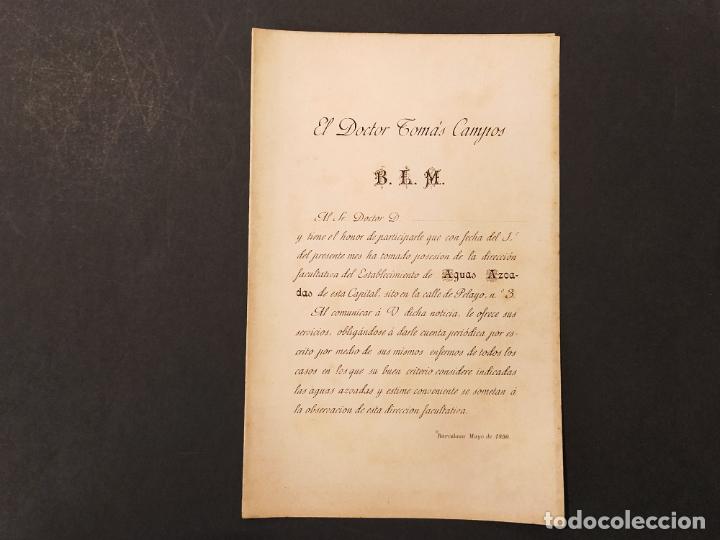 El Doctor Tomás Campos
B. L. M.
Al Sr. Doctor D.
y tiene el honor de participarle que con fecha del 1.º
del presente mes ha tomado posesion de la dirección
facultativa del Establecimiento de Aguas Azoa-
das de esta Capital, sito en la calle de Pelayo, n.º 3.
Al comunicar á V. dicha noticia, le ofrece sus
servicios, obligándose á darle cuenta periódica por es-
crito por medio de sus mismos enfermos de todos los
casos en los que su buen criterio considere indicadas
las aguas azoadas y estime conveniente se sometan á
la observacion de esta direccion facultativa.
Barcelona Mayo de 1890.
todocoleccion
todocoleccion.net